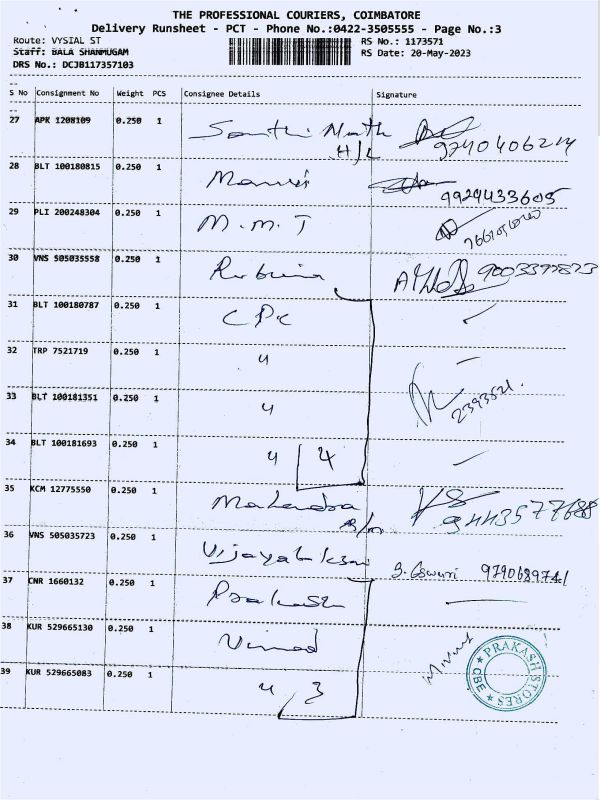 THE PROFESSIONAL COURIERS, COIMBATORE
Delivery Runsheet - PCT - Phone No.:0422-3505555 - Page No.:3
Route: VYSIAL ST
RS No.: 1173571
Staff: BALA SHANMUGAM
RS Date: 20-May-2023
DRS No.: DCJB117357103
S No Consignment No Weight PCS Consignee Details Signature
27 APK 1208109 0.250 1 9740406214
28 BLT 100180815 0.250 1 9929433605
29 PLI 200248304 0.250 1 M.M.T
30 VNS 505035558 0.250 1 Rubina
31 BLT 100180787 0.250 1 CPC
32 TRP 7521719 0.250 1 "
33 BLT 100181351 0.250 1 " 2393521.
34 BLT 100181693 0.250 1 " 4
35 KCM 12775550 0.250 1 Mahendra 9443577688
36 VNS 505035723 0.250 1 9790689741
37 CNR 1660132 0.250 1 Prakash
38 KUR 529665130 0.250 1 Vimod
39 KUR 529665083 0.250 1 " 3
PRAKASH STORES CBE